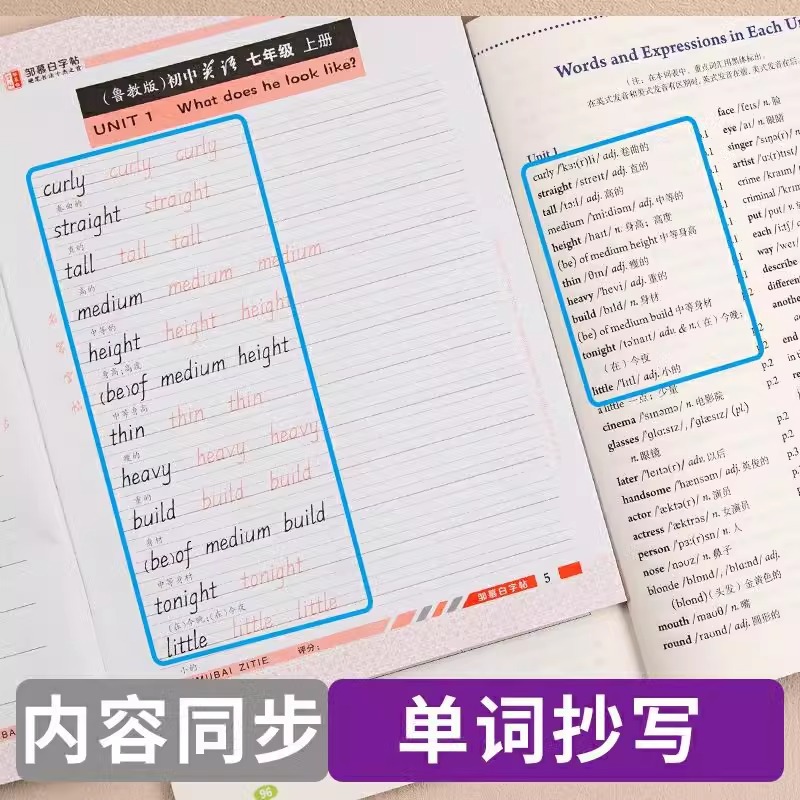 邹慕白字帖
硬笔书法十大名家
(鲁教版)初中英语 七年级 上册
UNIT 1 What does he look like?
curly curly curly
卷曲的
straight straight
直的
tall tall tall
高的
medium medium medium
中等的
height height height
身高;高度
(be)of medium height
中等身高
thin thin thin
瘦的
heavy heavy heavy
重的
build build build
身材
(be)of medium build
中等身材
tonight tonight
(在)今晚;(在)今夜
little little little
小的
MUBAI ZITIE 评分:
邹慕白字帖 5
96
Words and Expressions in Each Un
(注:在本词表中,重点词汇用黑体标出,
在英式发音和美式发音有区别时,英式发音在前,美式发音在后。
Unit 1
curly /'kɜː(r)li/ adj. 卷曲的 p.1
straight /streɪt/ adj. 直的
tall /tɔːl/ adj. 高的
medium /'miːdiəm/ adj. 中等的
height /haɪt/ n. 身高;高度
(be) of medium height 中等身高
thin /θɪn/ adj. 瘦的
heavy /'hevi/ adj. 重的
build /bɪld/ n. 身材
(be) of medium build 中等身材
tonight /tə'naɪt/ adv. & n.(在)今晚;
(在)今夜
little /'lɪtl/ adj. 小的
a little 一点;少量
cinema /'sɪnəmə/ n. 电影院
glasses /'glɑːsɪz/, /'glæsɪz/ (pl.)
n. 眼镜
later /'leɪtə(r)/ adv. 以后
handsome /'hænsəm/ adj. 英俊的
actor /'æktə(r)/ n. 演员
actress /'æktrəs/ n. 女演员
person /'pɜː(r)sn/ n. 人
nose /nəʊz/ n. 鼻子
blonde /blɒnd/, /blɑːnd/ adj.
(blond)(头发)金黄色的
mouth /maʊθ/ n. 嘴
round /raʊnd/ adj. 圆形的
face /feɪs/ n. 脸
eye /aɪ/ n. 眼睛
singer /'sɪŋə(r)/ n.
artist /'ɑː(r)tɪst/
crime /kraɪm/
criminal /'krɪm
put /pʊt/
each /iːtʃ/
way /weɪ/
describe
different
another
end
in
real
内容同步 单词抄写